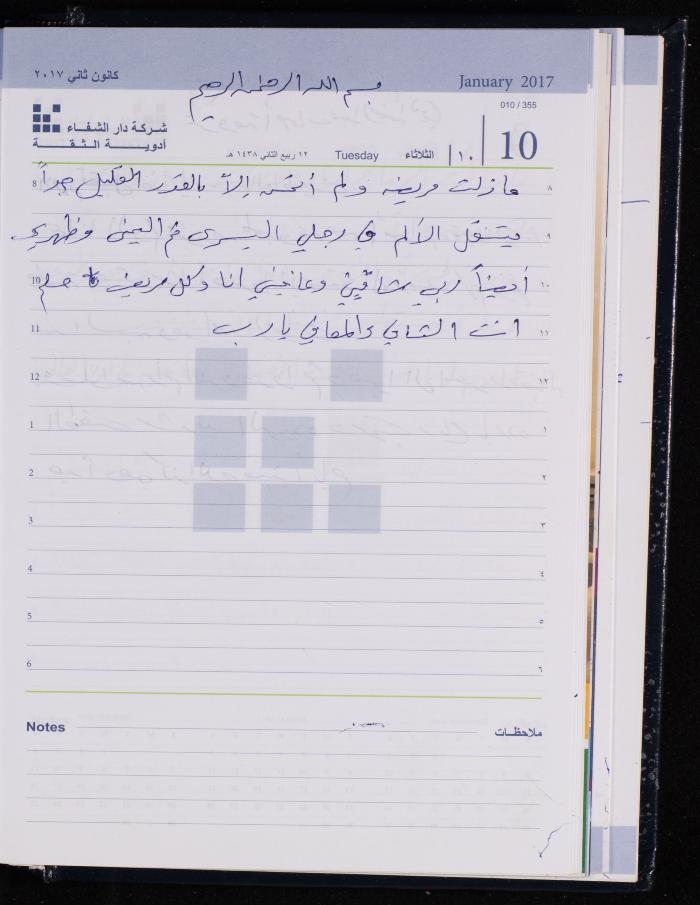 كانون ثاني ٢٠١٧
بسم الله الرحمن الرحيم
January 2017
010 / 355
شركة دار الشفاء
أدوية الثقة
١٢ ربيع الثاني ١٤٣٨ هـ
Tuesday
الثلاثاء
١٠
10
8 ما زلت مريضة ولم أتحسن إلاّ بالقدر القليل جداً ٨
يتنقل الألم في رجلي اليسرى ثم اليمنى وظهري ٩
10 أيضاً ربي شافيني وعافيني انا وكل مريض ١٠
11 انت الشافي والمعافي يا رب ١١
12 ١٢
1 ١
2 ٢
3 ٣
4 ٤
5 ٥
6 ٦
Notes ملاحظات